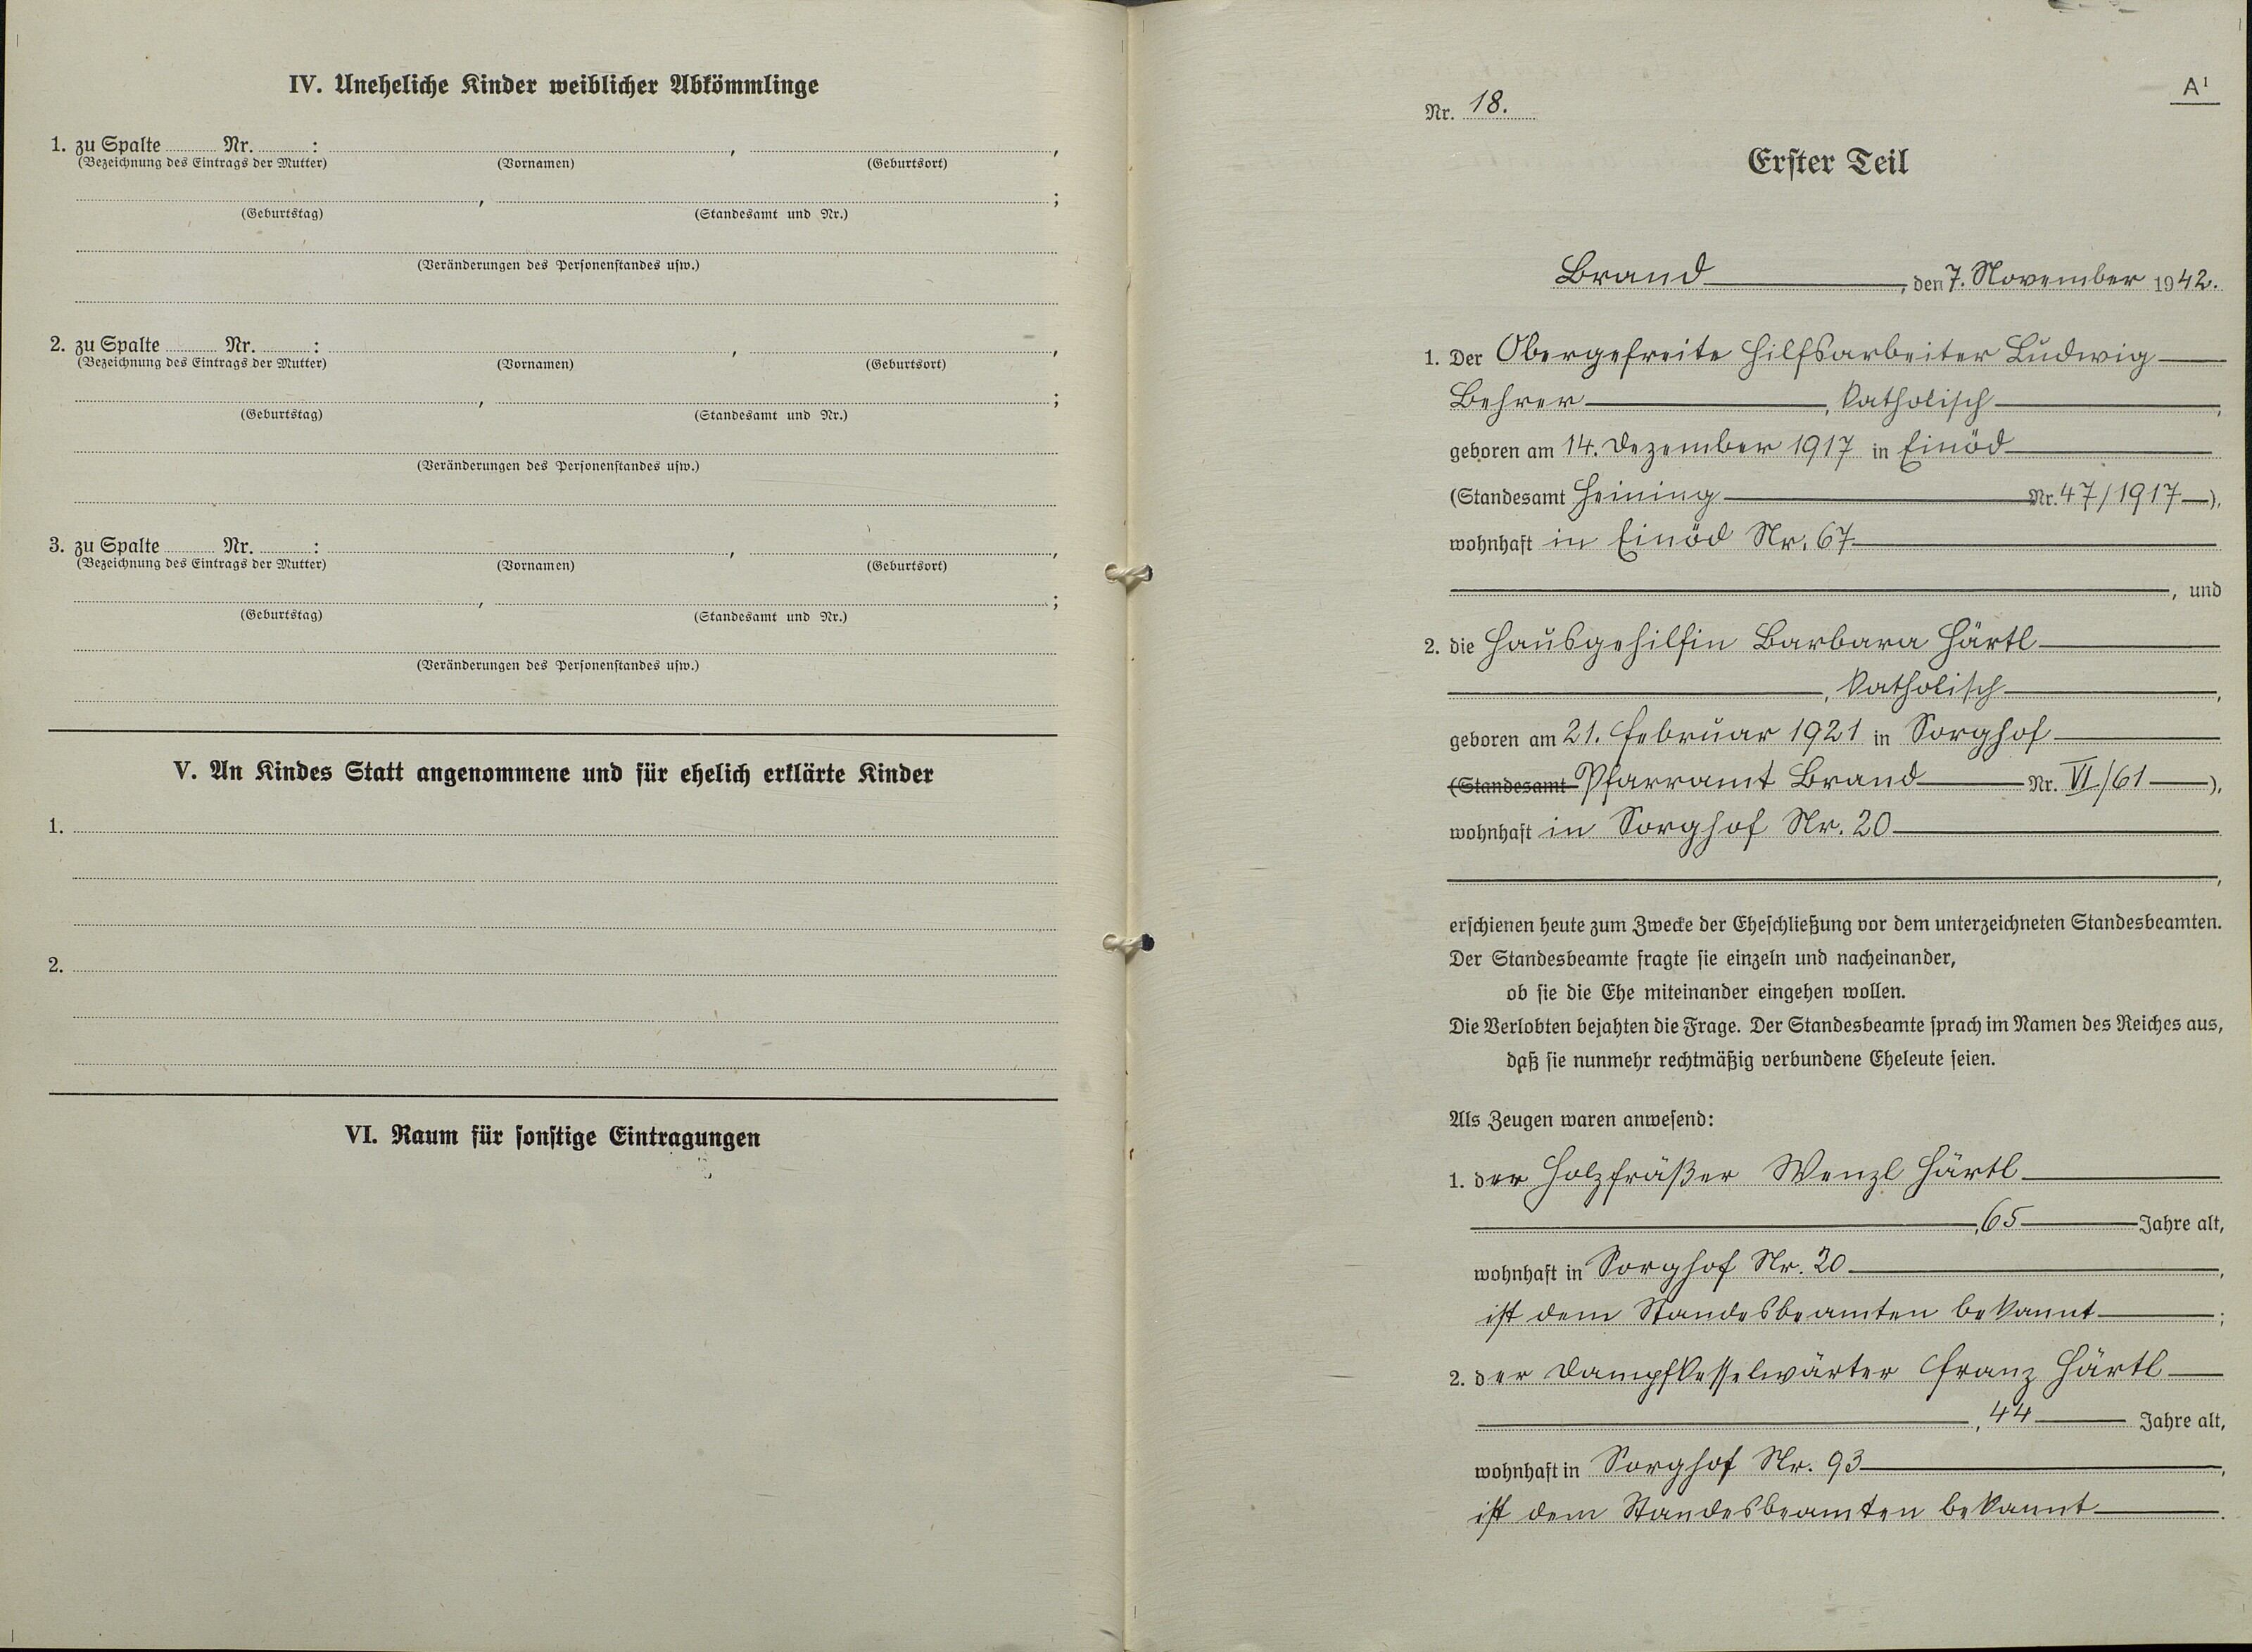 IV. Uneheliche Kinder weiblicher Abkömmlinge
1. zu Spalte ........ Nr. ........ : ........ , ........ ,
(Bezeichnung des Eintrags der Mutter) (Vornamen) (Geburtsort)
........ , ........ ;
(Geburtstag) (Standesamt und Nr.)
(Veränderungen des Personenstandes usw.)
2. zu Spalte ........ Nr. ........ : ........ , ........ ,
(Bezeichnung des Eintrags der Mutter) (Vornamen) (Geburtsort)
........ , ........ ;
(Geburtstag) (Standesamt und Nr.)
(Veränderungen des Personenstandes usw.)
3. zu Spalte ........ Nr. ........ : ........ , ........ ,
(Bezeichnung des Eintrags der Mutter) (Vornamen) (Geburtsort)
........ , ........ ;
(Geburtstag) (Standesamt und Nr.)
(Veränderungen des Personenstandes usw.)
V. An Kindes Statt angenommene und für ehelich erklärte Kinder
1.
2.
VI. Raum für sonstige Eintragungen
A¹
Nr. 18.
Erster Teil
Brand, den 7. November 1942.
1. Der Obergefreite Hilfsarbeiter Ludwig
Behrer, katholisch,
geboren am 14. Dezember 1917 in Einöd
(Standesamt Heining Nr. 47/1917),
wohnhaft in Einöd Nr. 67
, und
2. die Hausgehilfin Barbara Härtl
, katholisch,
geboren am 21. Februar 1921 in Sorghof
(Standesamt Pfarramt Brand Nr. VI/61),
wohnhaft in Sorghof Nr. 20
,
erschienen heute zum Zwecke der Eheschließung vor dem unterzeichneten Standesbeamten.
Der Standesbeamte fragte sie einzeln und nacheinander,
ob sie die Ehe miteinander eingehen wollen.
Die Verlobten bejahten die Frage. Der Standesbeamte sprach im Namen des Reiches aus,
daß sie nunmehr rechtmäßig verbundene Eheleute seien.
Als Zeugen waren anwesend:
1. der Holzfräßer Wenzl Härtl
, 65 Jahre alt,
wohnhaft in Sorghof Nr. 20,
ist dem Standesbeamten bekannt;
2. der Dampfkesselwärter Franz Härtl
, 44 Jahre alt,
wohnhaft in Sorghof Nr. 93,
ist dem Standesbeamten bekannt.